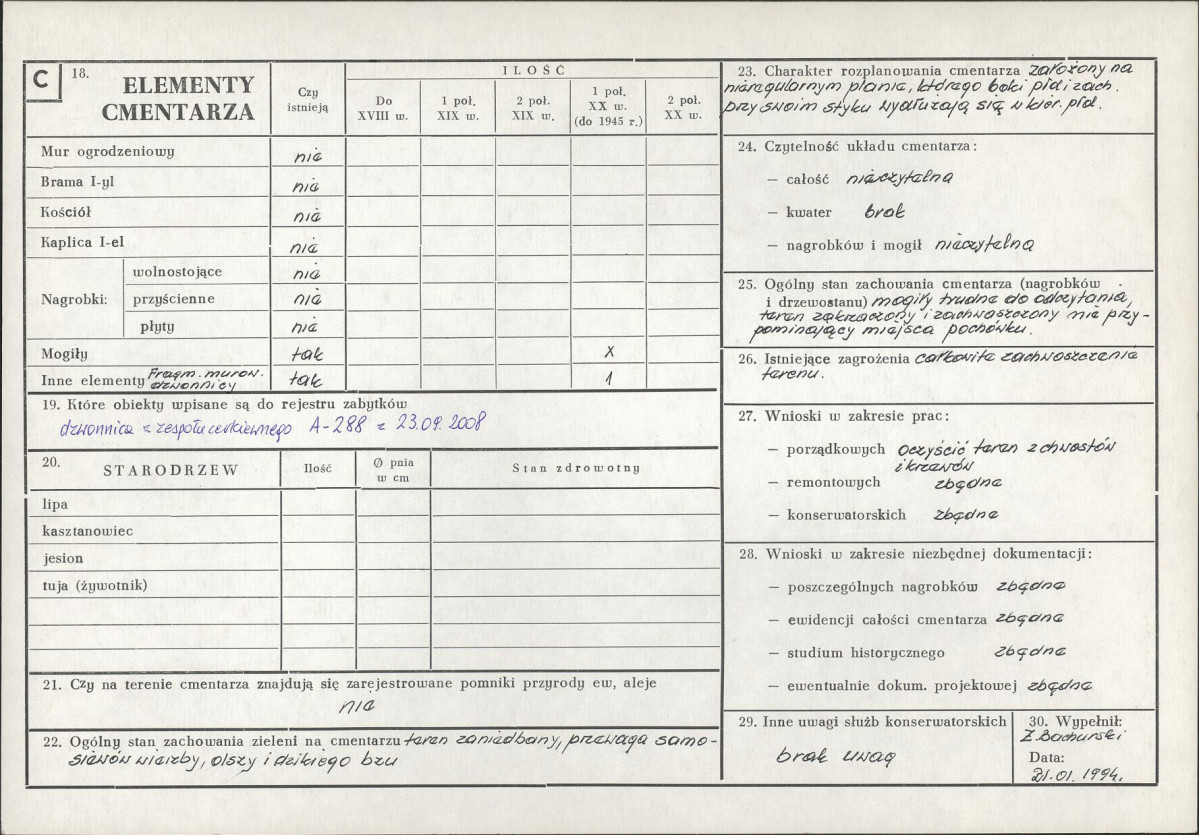 C 18. ELEMENTY CMENTARZA
Czy istnieją
ILOŚĆ
Do XVIII w.
1 poł. XIX w.
2 poł. XIX w.
1 poł. XX w. (do 1945 r.)
2 poł. XX w.
Mur ogrodzeniowy nie
Brama I-yl nie
Kościół nie
Kaplica I-el nie
Nagrobki: wolnostojące nie
przyścienne nie
płyty nie
Mogiły tak X
Inne elementy Fragm. murow. dzwonnicy tak 1
19. Które obiekty wpisane są do rejestru zabytków
dzwonnica z zespołu cerkiewnego A-288 z 23.09.2008
20. STARODRZEW Ilość Ø pnia w cm Stan zdrowotny
lipa
kasztanowiec
jesion
tuja (żywotnik)
21. Czy na terenie cmentarza znajdują się zarejestrowane pomniki przyrody ew, aleje
nie
22. Ogólny stan zachowania zieleni na cmentarzu teren zaniedbany, przewaga samo-
siewów wierzby, olszy i dzikiego bzu
23. Charakter rozplanowania cmentarza założony na
nieregularnym planie, którego boki płd i zach.
przy swoim styku wydłużają się w kier. płd.
24. Czytelność układu cmentarza:
— całość nieczytelna
— kwater brak
— nagrobków i mogił nieczytelna
25. Ogólny stan zachowania cmentarza (nagrobków
i drzewostanu) mogiły trudne do odczytania,
teren zakrzaczony i zachwaszczony nie przy-
pominający miejsca pochówku.
26. Istniejące zagrożenia całkowite zachwaszczenie
terenu.
27. Wnioski w zakresie prac:
— porządkowych oczyścić teren z chwastów
i krzewów
— remontowych zbędne
— konserwatorskich zbędne
28. Wnioski w zakresie niezbędnej dokumentacji:
— poszczególnych nagrobków zbędne
— ewidencji całości cmentarza zbędne
— studium historycznego zbędne
— ewentualnie dokum. projektowej zbędne
29. Inne uwagi służb konserwatorskich
brak uwag
30. Wypełnił:
Z. Bachurski
Data:
21.01.1994.